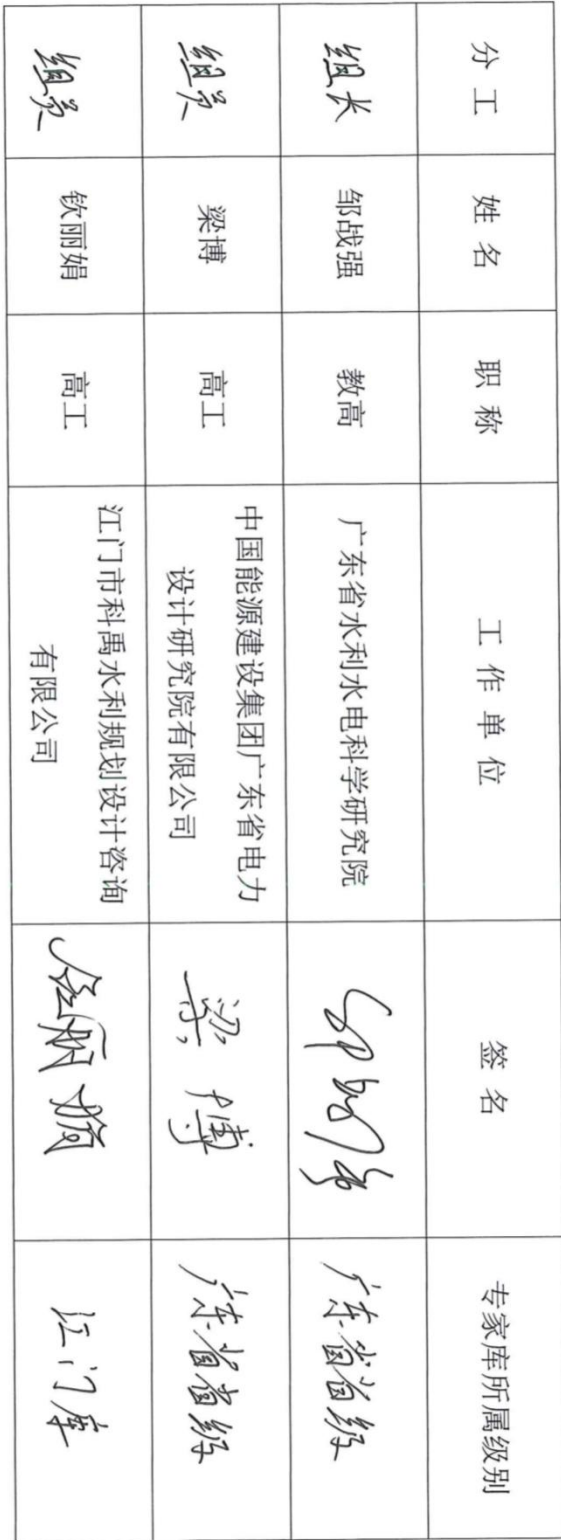 分工 姓名 职称 工作单位 签名 专家库所属级别
组长 邹战强 教高 广东省水利水电科学研究院 邹战强 广东省省级
组员 梁博 高工 中国能源建设集团广东省电力
设计研究院有限公司 梁博 广东省省级
组员 钦丽娟 高工 江门市科禹水利规划设计咨询
有限公司 钦丽娟 江门库